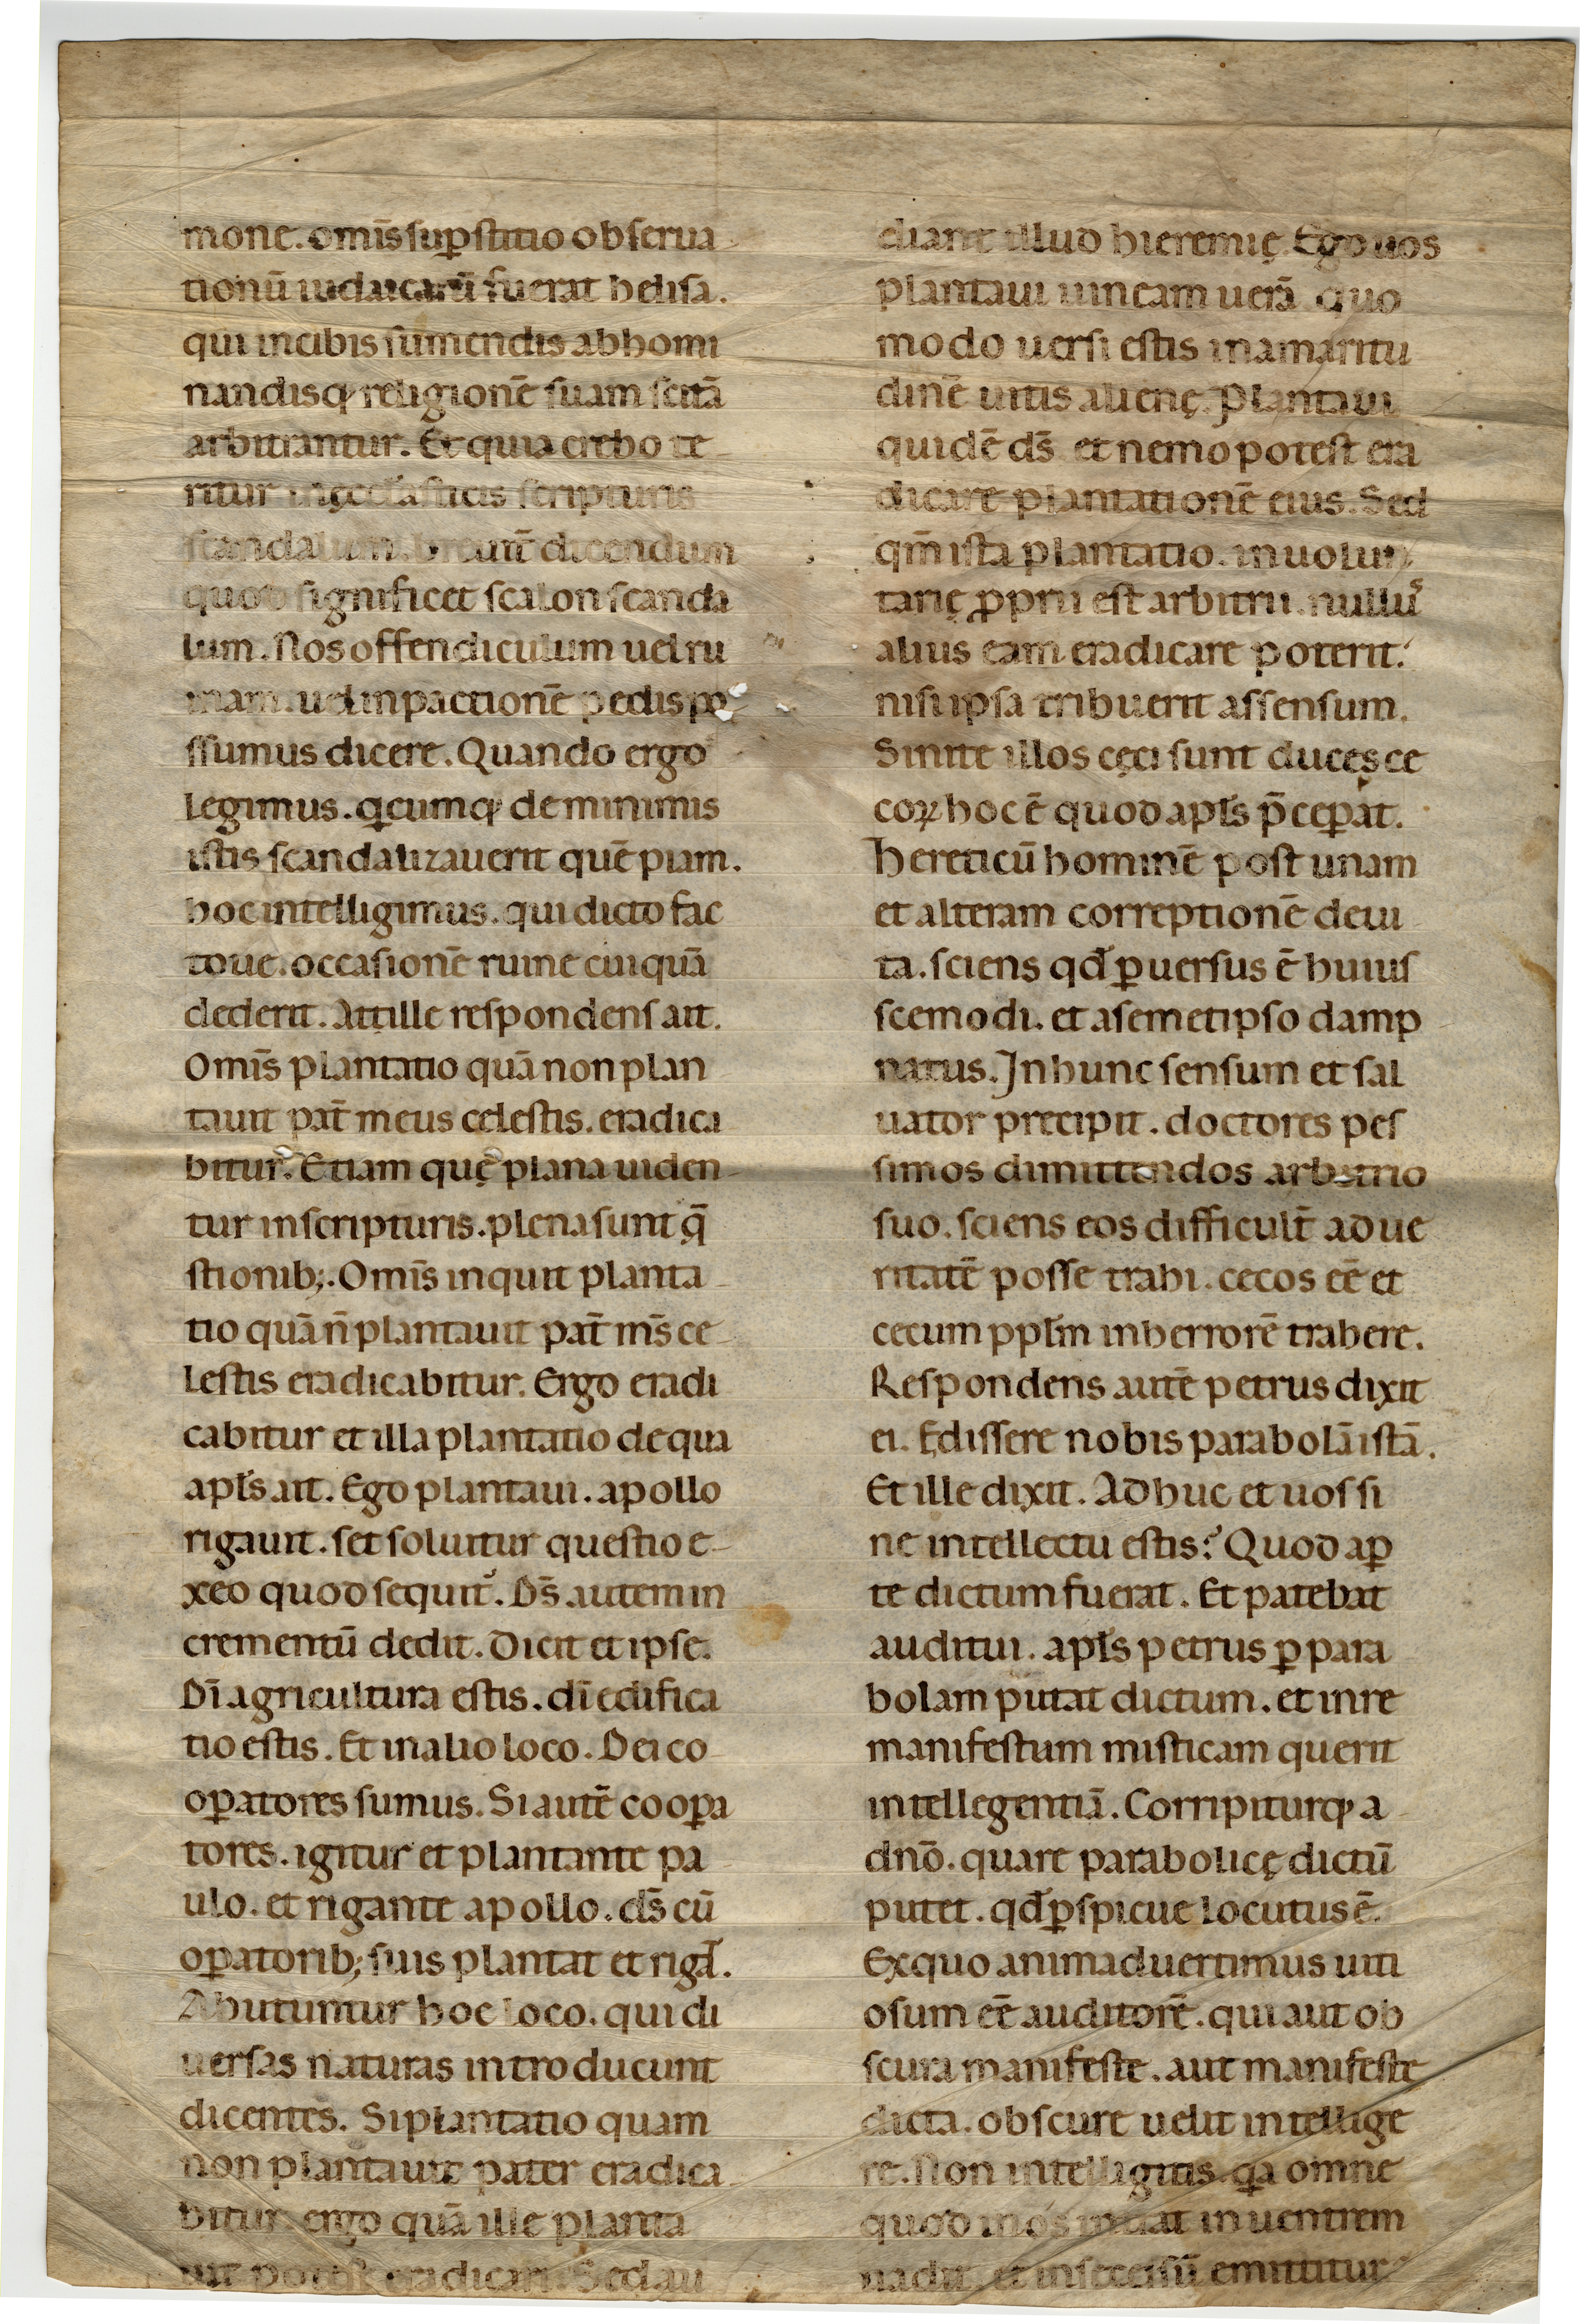 mone. omīs suꝑstitio obserua
tionū iudaicarū fuerat helisa.
qui incibis sumendis abhomi
nandisq; religionē suam scitā
arbitrantur. Et quia crebo te
ritur inęcclasticis scripturis
scandalum. breuit̄ dicendum
quod significet scalon scanda
lum. Nos offendiculum uel ru
inam. uel inpactionē pedis po
ssumus dicere. Quando ergo
legimus. qicumq; de minimis
istis scandalizauerit quē piam.
hoc intelligimus. qui dicto fac
toue. occasionē ruine cuiquā
dederit. Atille respondens ait.
Omīs plantatio quā non plan
tauit pat̄ meus celestis. eradica
bitur. Etiam quę plana uiden
tur inscripturis. plena sunt q̄
stionib;. Omīs inquit planta
tio quā n̄ plantauit pat̄ m̄s ce
lestis eradicabitur. Ergo eradi
cabitur et illa plantatio de qua
apl̄s ait. Ego plantaui. apollo
rigauit. set soluitur questio e
xeo quod sequit᷑. Ds̄ autem in
crementū dedit. Dicit et ipse.
Dī agricultura estis. dī edifica
tio estis. Et inalio loco. Dei co
oꝑatores sumus. Si autē cooꝑa
tores. igitur et plantante pa
ulo. et rigante apollo. ds̄ cū
oꝑatorib; suis plantat et rigat.
Abutuntur hoc loco. qui di
uersas naturas introducunt
dicentes. Si plantatio quam
non plantauit pater eradica
bitur. ergo quā ille planta
uit eradicari. Sed au
diant illud hieremię. Ego uos
plantaui uineam uerā. quo
modo uersi estis inamaritu
dinē uitis alienę. Plantaui
quidē ds̄ et nemo potest era
dicare plantationē eius. Sed
qm̄ ista plantatio. inuolun
tarię ꝓprii est arbitrii. nullus
alius eam eradicare poterit.
nisi ipsa tribuerit assensum.
Sinite illos cęci sunt duces ce
coꝝ hoc ē quod apl̄s p̄ceꝑat.
hereticū hominē post unam
et alteram correptionē deui
ta. sciens qd̄ ꝑuersus ē huius
scemodi. et asemetipso damp
natus. Inhunc sensum et sal
uator precipit. doctores pes
simos dimittendos arbitrio
suo. sciens eos difficult̄ ad ue
ritatē posse trahi. cecos eē et
cecum ppl̄m inherrorē trahere.
Respondens autē petrus dixit
ei. Edissere nobis parabolā istā.
Et ille dixit. Adhuc et uos si
ne intellectu estis? Quod aꝑ
te dictum fuerat. Et patebat
auditui. apl̄s petrus ꝑ para
bolam putat dictum. et inre
manifestum misticam querit
intellegentiā. Corripiturq; a
dn̄o. quare parabolicę dictū
putet. qd̄ ꝑspicue locutus ē.
Exquo animaduertimus uiti
osum eē auditorē. qui aut ob
scura manifeste. aut manifeste
dicta. obscure uelit intellige
re. Non intelligitis. qa omne
quod inos intrat in uentrem
uadit. et insecessū emittitur?